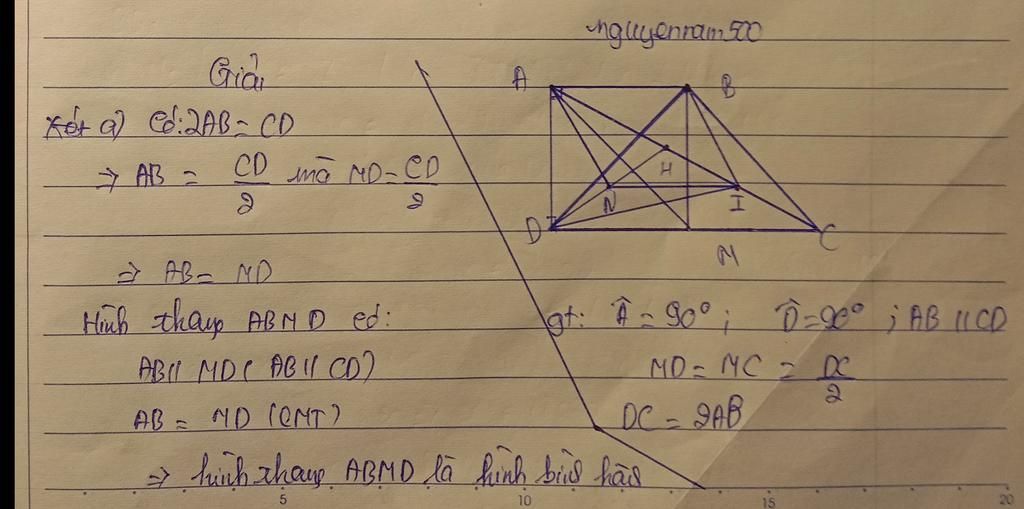 nguyennam500
Giải
Xét a) Có: 2AB = CD
⇒ AB = CD/2 mà MD = CD/2
⇒ AB = MD
Hình thang ABMD có:
AB // MD ( AB // CD)
AB = MD (CMT)
⇒ hình thang ABMD là hình bình hành
A B
H
N I
D M C
gt: Â = 90° ; D̂ = 90° ; AB // CD
MD = MC = DC/2
DC = 2AB
5 10 15 20